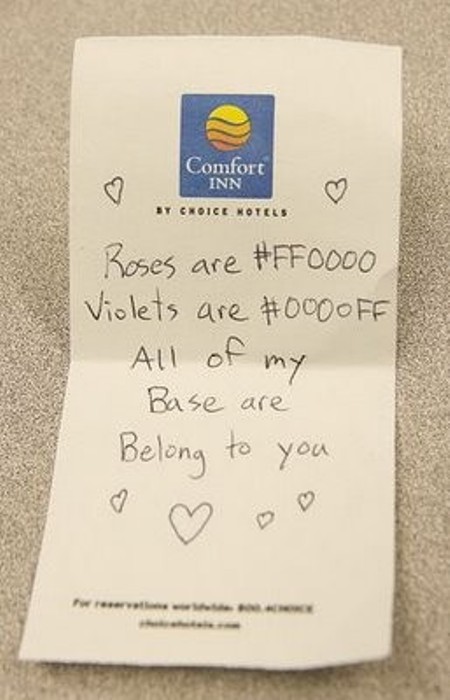 Comfort
INN
BY CHOICE HOTELS
Roses are #FF0000
Violets are #0000FF
All of my
Base are
Belong to you
For reservations worldwide: 800.4CHOICE
choicehotels.com